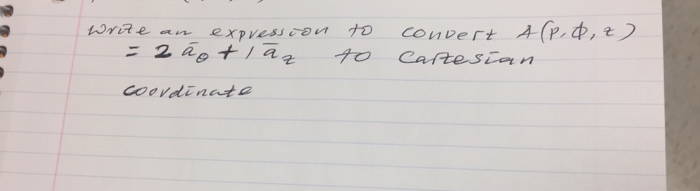 Write an expression to convert A(ρ, Φ, z)
= 2 a̅θ + 1 a̅z to Cartesian
coordinate